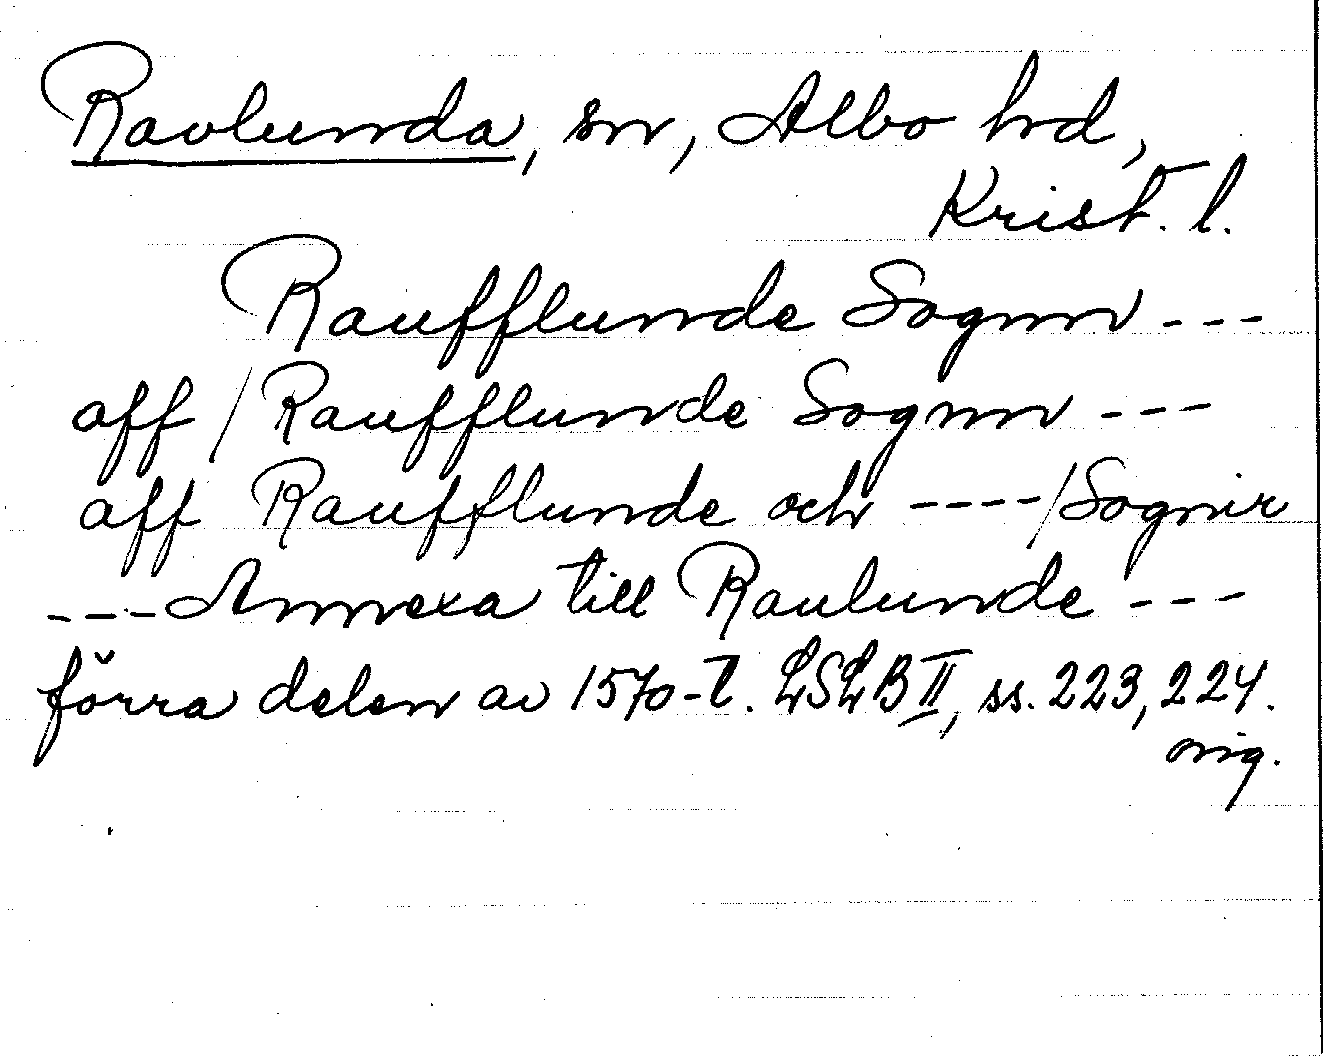 Ravlunda, sn, Albo hd,
Krist. l.
Raufflunde Sognn ---
aff / Raufflunde Sognn ---
aff Raufflunde och ----/Sognir
--- Annexa till Raulunde ---
förra delen av 1570-t. LSLB II, ss. 223, 224.
orig.